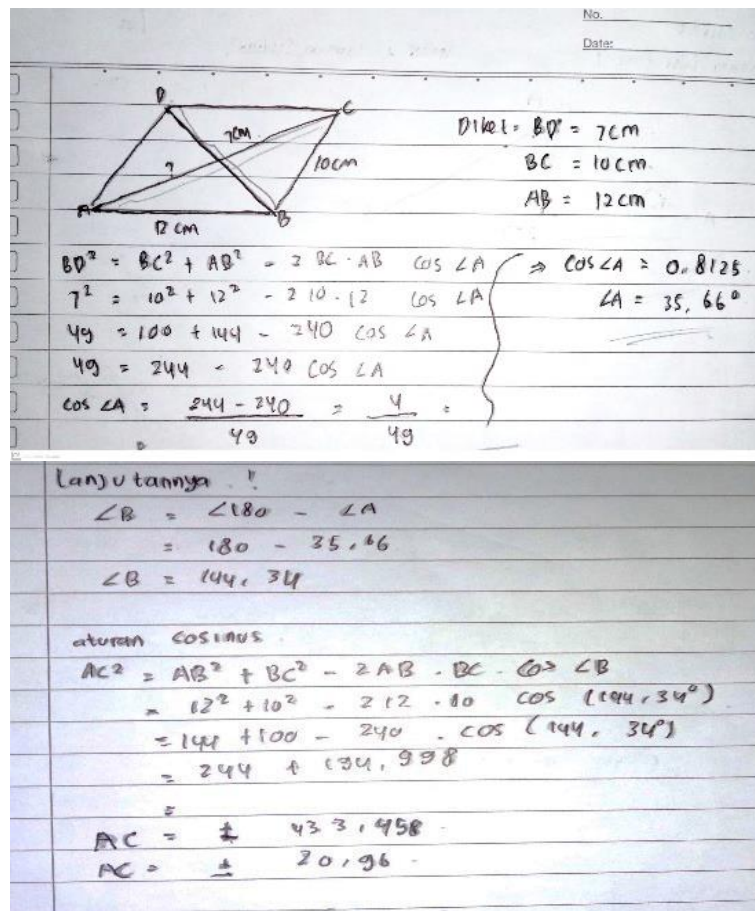 No.
Date:
D
C
7cm
?
10cm
A
B
12 cm
Diket = BD = 7cm
BC = 10cm
AB = 12cm
BD² = BC² + AB² - 2 BC . AB cos ∠A
7² = 10² + 12² - 2 10 . 12 cos ∠A
49 = 100 + 144 - 240 cos ∠A
49 = 244 - 240 cos ∠A
cos ∠A = 244 - 240 / 49 = 4 / 49 =
⇒ cos ∠A = 0.8125
∠A = 35,66°
Lanjutannya !
∠B = ∠180 - ∠A
= 180 - 35,66
∠B = 144,34
aturan cosinus
AC² = AB² + BC² - 2AB . BC . cos ∠B
= 12² + 10² - 2 12 . 10 cos (144,34°)
= 144 + 100 - 240 . cos (144,34°)
= 244 + 194,998
=
AC = ± 433,958
AC = ± 20,96